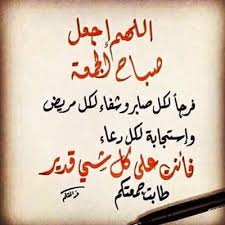 اللهم إجعل
صباح الجمعة
فرجاً لكل صابر وشفاء لكل مريض
وإستجابة لكل دعاء
فانك على كل شيئ قدير
طابت جمعتكم